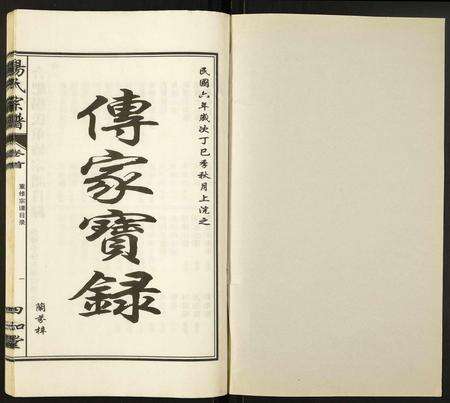 民國六年歲次丁巳季秋月上浣之
傳家寶録
蘭芳梓
楊氏宗譜
卷首
重修宗譜目录
一
四知堂